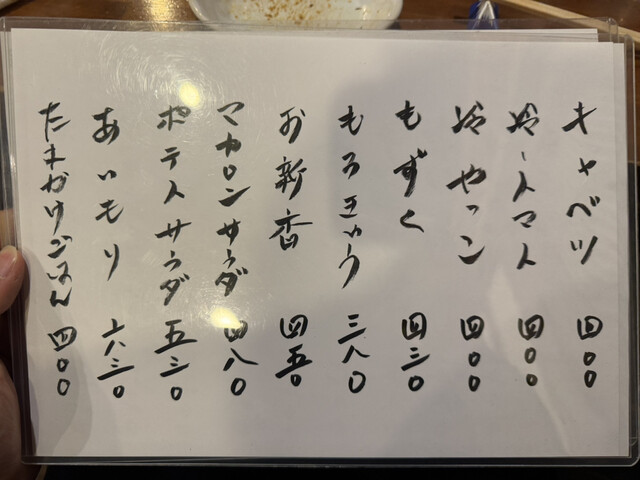 キャベツ 四〇〇
冷しトマト 四〇〇
冷やっこ 四〇〇
もずく 四三〇
もろきゅう 三八〇
お新香 四五〇
マカロンサラダ 四八〇
ポテトサラダ 五三〇
あいもり 六三〇
たまかけごはん 四〇〇